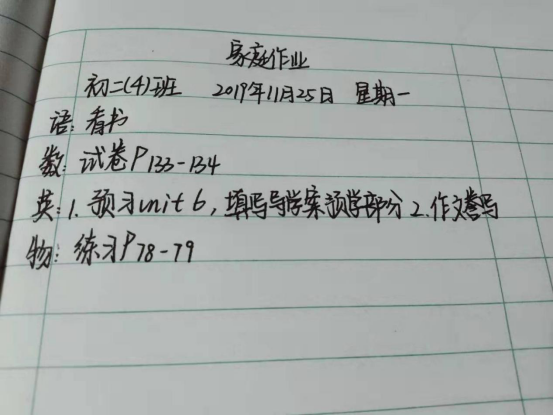 家庭作业
初二(4)班 2019年11月25日 星期一
语: 看书
数: 试卷P133-134
英: 1. 预习unit 6, 填写导学案预学部分 2. 作文誊写
物: 练习P78-79